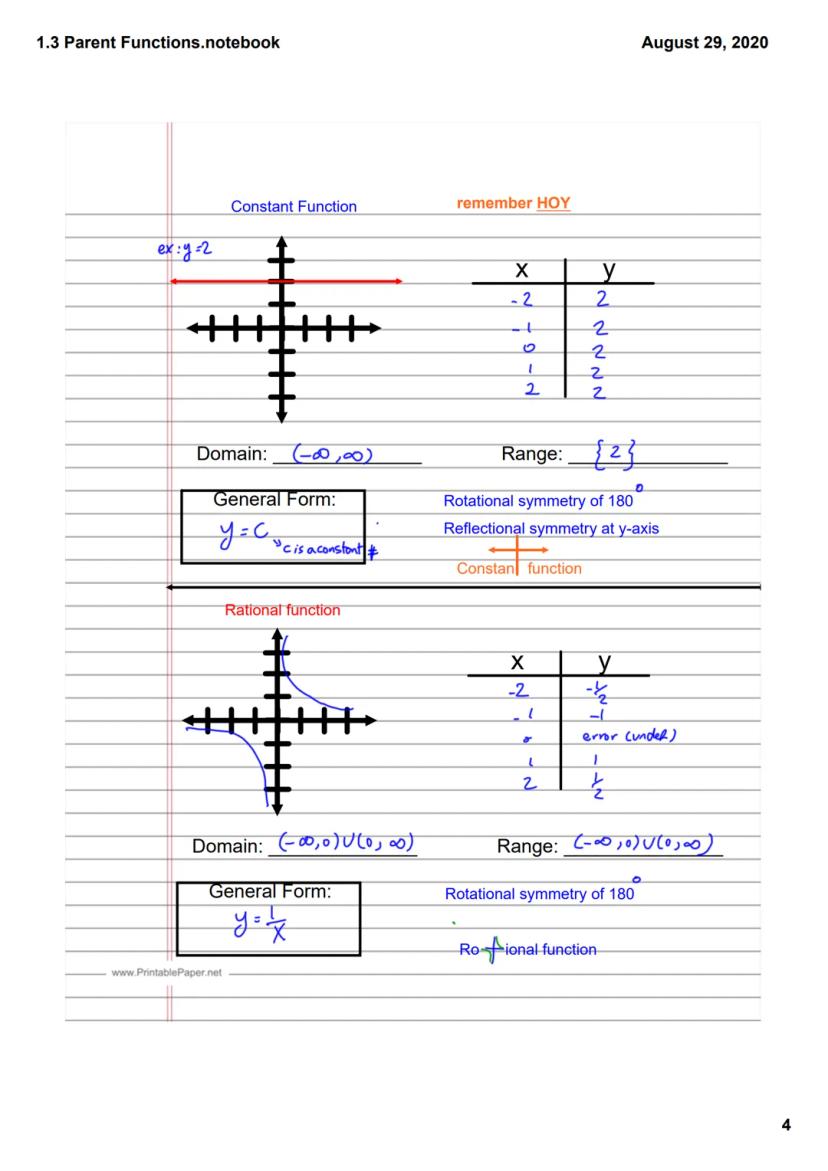 1.3 Parent Functions.notebook
August 29, 2020
Constant Function
remember HOY
ex: y=2
x y
-2 2
-1 2
0 2
1 2
2 2
Domain: (-∞,∞)
Range: {2}
General Form:
y=C
c is a constant #
Rotational symmetry of 180°
Reflectional symmetry at y-axis
Constan function
Rational function
x y
-2 -1/2
-1 -1
0 error (undef)
1 1
2 1/2
Domain: (-∞,0)∪(0,∞)
Range: (-∞,0)∪(0,∞)
General Form:
y=1/x
Rotational symmetry of 180°
Ro ional function
www.PrintablePaper.net
4